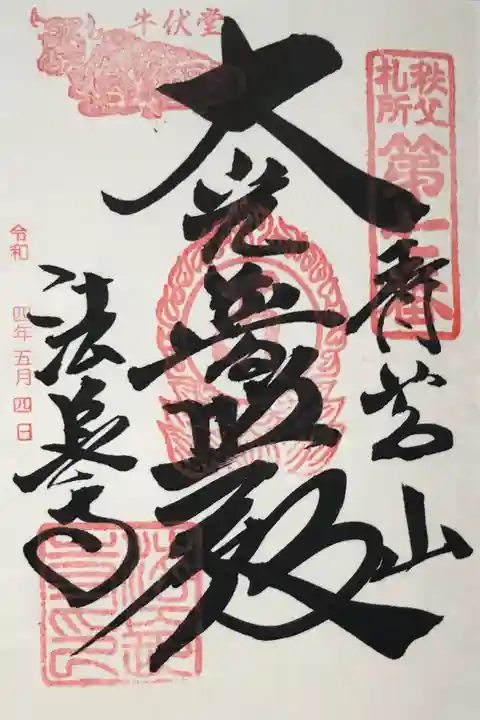 牛伏堂
秩父
札所
第七番
青苔山
大光普照殿
法長寺
令和 四年五月四日